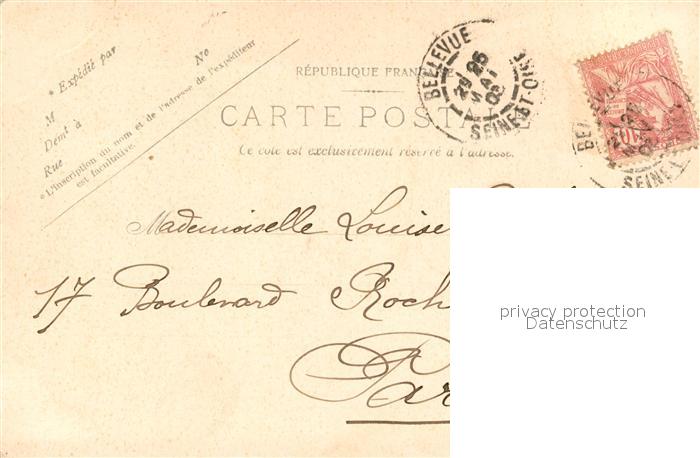 * Expédié par
M
Demt à
No
Rue
*L'inscription du nom et de l'adresse de l'expéditeur
est facultative.
RÉPUBLIQUE FRAN
CARTE POSTA
Ce coté est exclusivement réservé à l'adresse.
BELLEVUE
25
MAI
SEINE-ET-OISE
10
SEINE
Mademoiselle Louise
17 Boulevard Roch
Par
privacy protection
Datenschutz